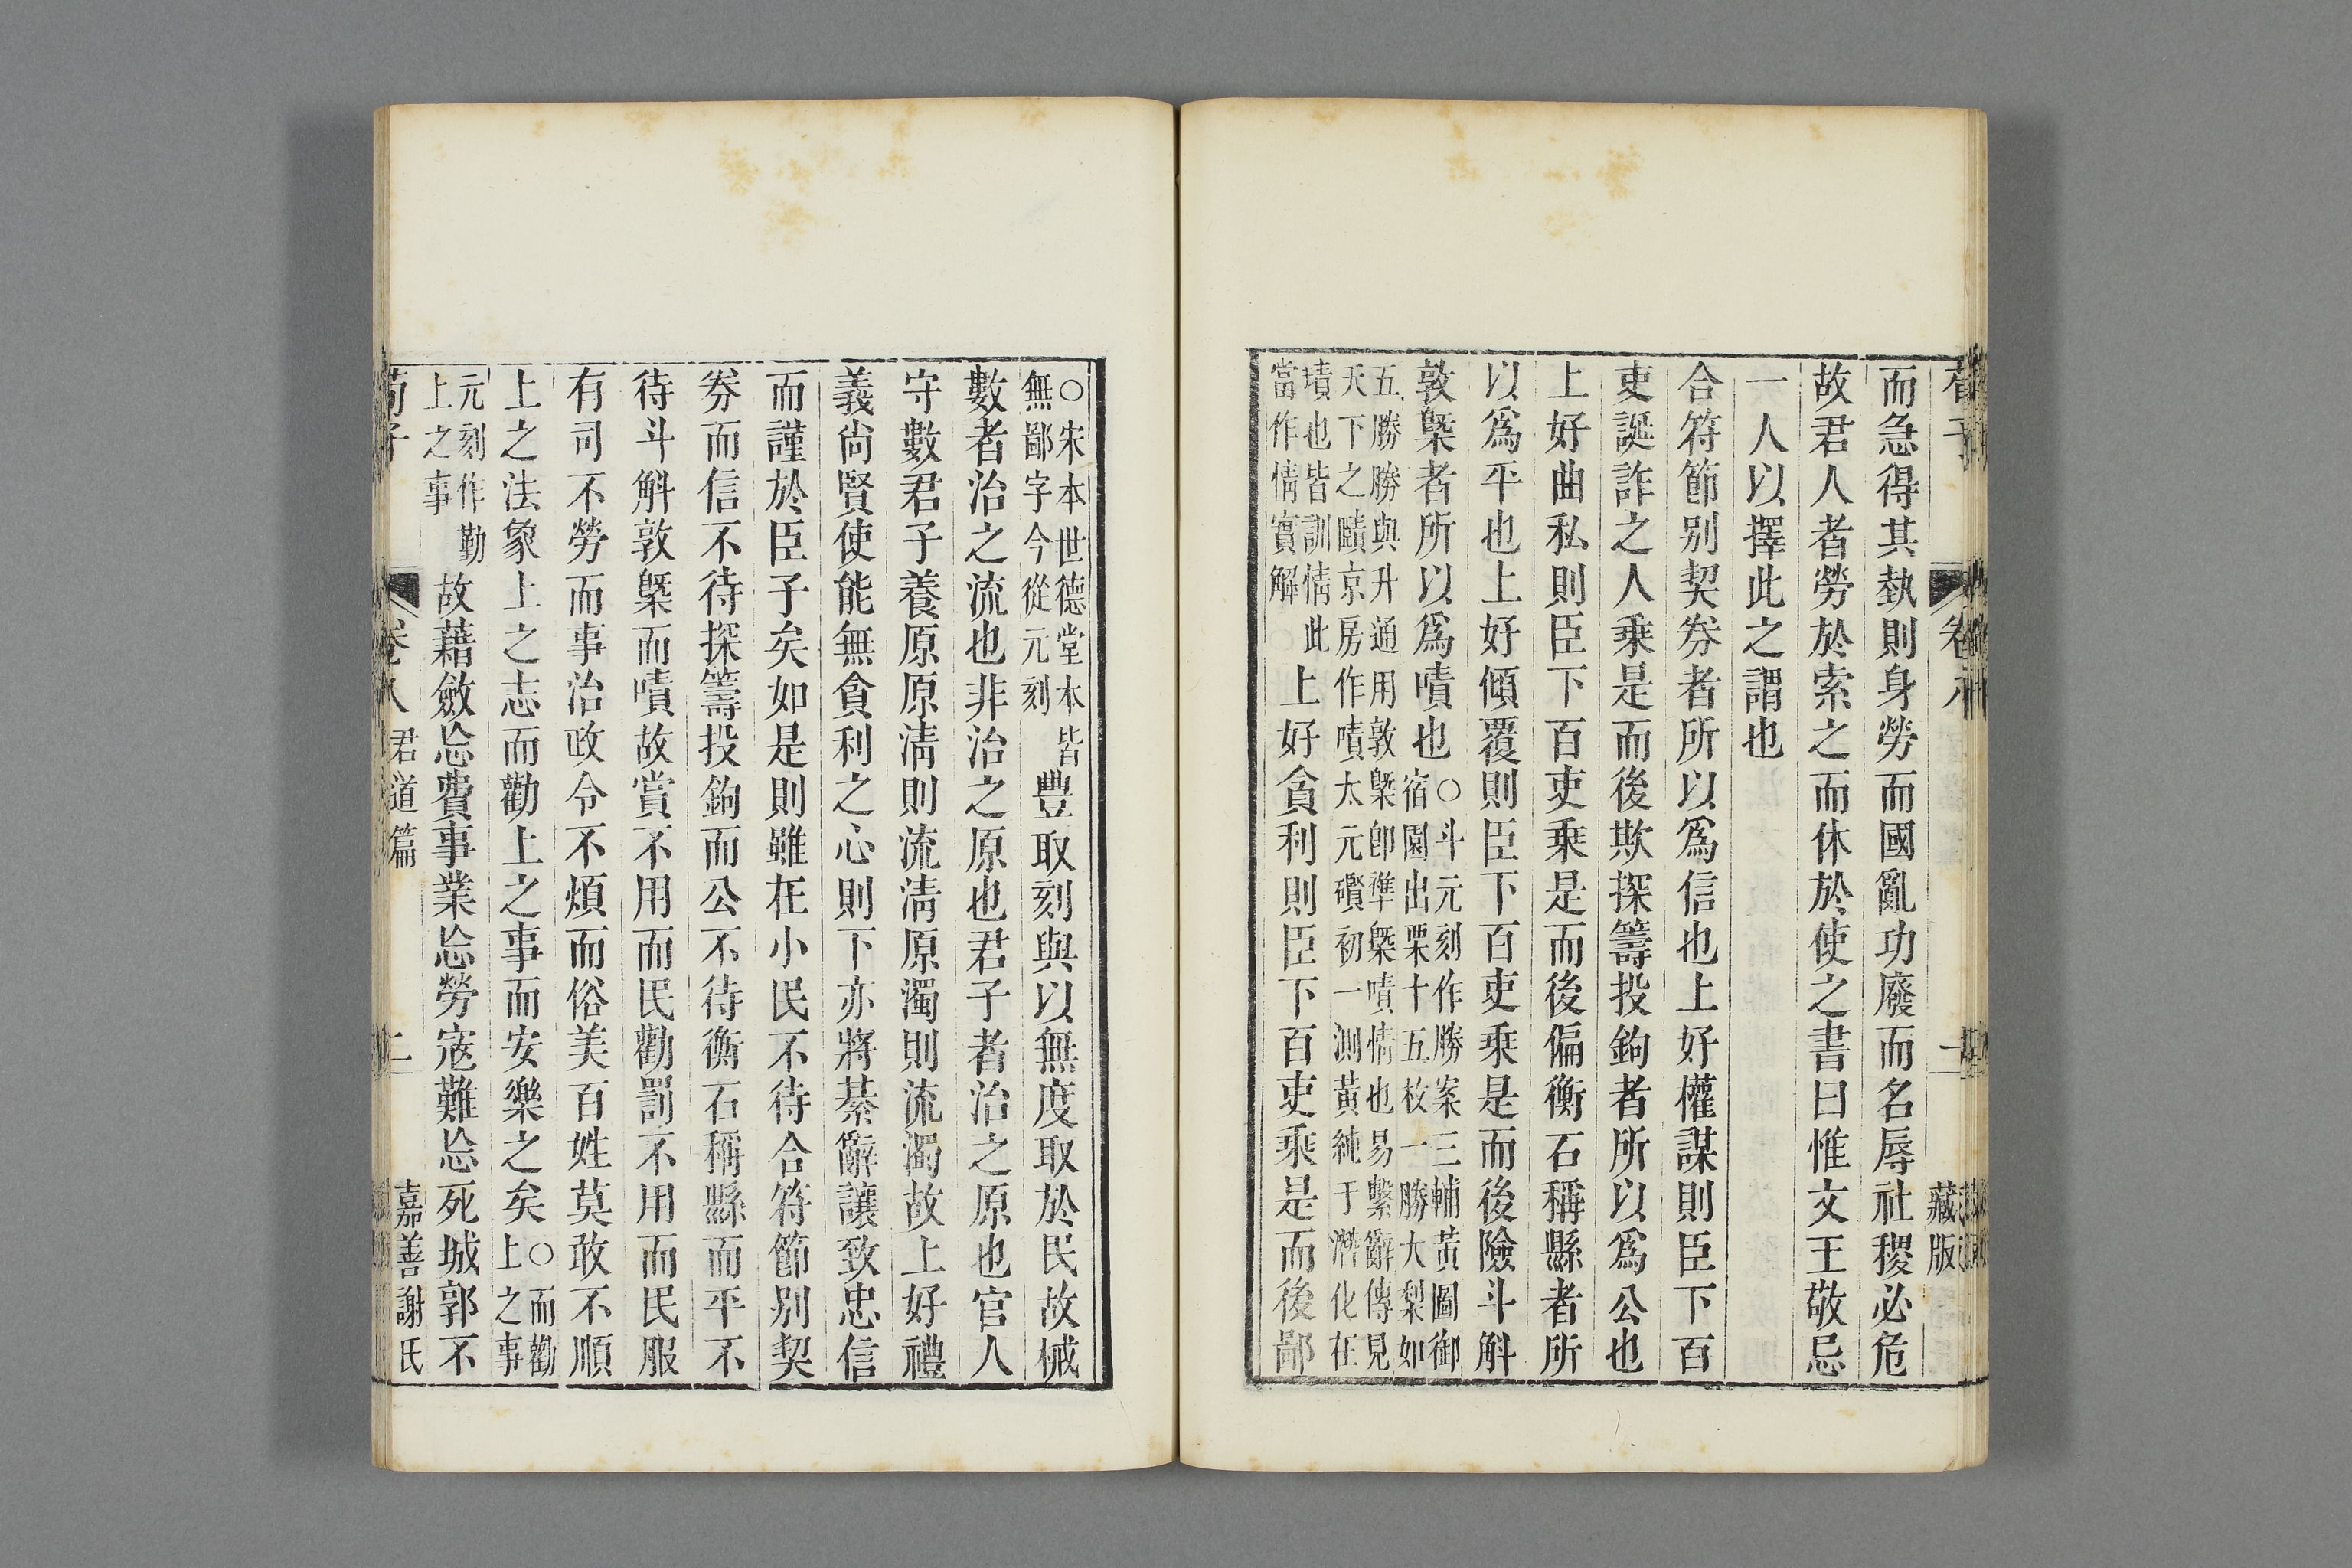 荀子 卷八 一 藏版
而急得其埶則身勞而國亂功廢而名辱社稷必危
故君人者勞於索之而休於使之書曰惟文王敬忌
一人以擇此之謂也
合符節别契券者所以爲信也上好權謀則臣下百
吏誕詐之人乘是而後欺探籌投鉤者所以爲公也
上好曲私則臣下百吏乘是而後偏衡石稱縣者所
以爲平也上好傾覆則臣下百吏乘是而後險斗斛
敦槩者所以爲嘖也○斗元刻作勝案三輔黃圖御
宿園出栗十五枚一勝大梨如
五勝勝與升通用敦槩卽準槩嘖情也易繫辭傳見
天下之賾京房作嘖太元礥初一測黃純于潛化在
嘖也皆訓情此
當作情實解上好貪利則臣下百吏乘是而後鄙
○宋本世德堂本皆
無鄙字今從元刻豐取刻與以無度取於民故械
數者治之流也非治之原也君子者治之原也官人
守數君子養原原淸則流淸原濁則流濁故上好禮
義尙賢使能無貪利之心則下亦將綦辭讓致忠信
而謹於臣子矣如是則雖在小民不待合符節别契
券而信不待探籌投鉤而公不待衡石稱縣而平不
待斗斛敦槩而嘖故賞不用而民勸罰不用而民服
有司不勞而事治政令不煩而俗美百姓莫敢不順
上之法象上之志而勸上之事而安樂之矣○而勸
上之事
元刻作勤
上之事故藉斂忘費事業忘勞寇難忘死城郭不
荀子 卷八 君道篇 二 嘉善謝氏